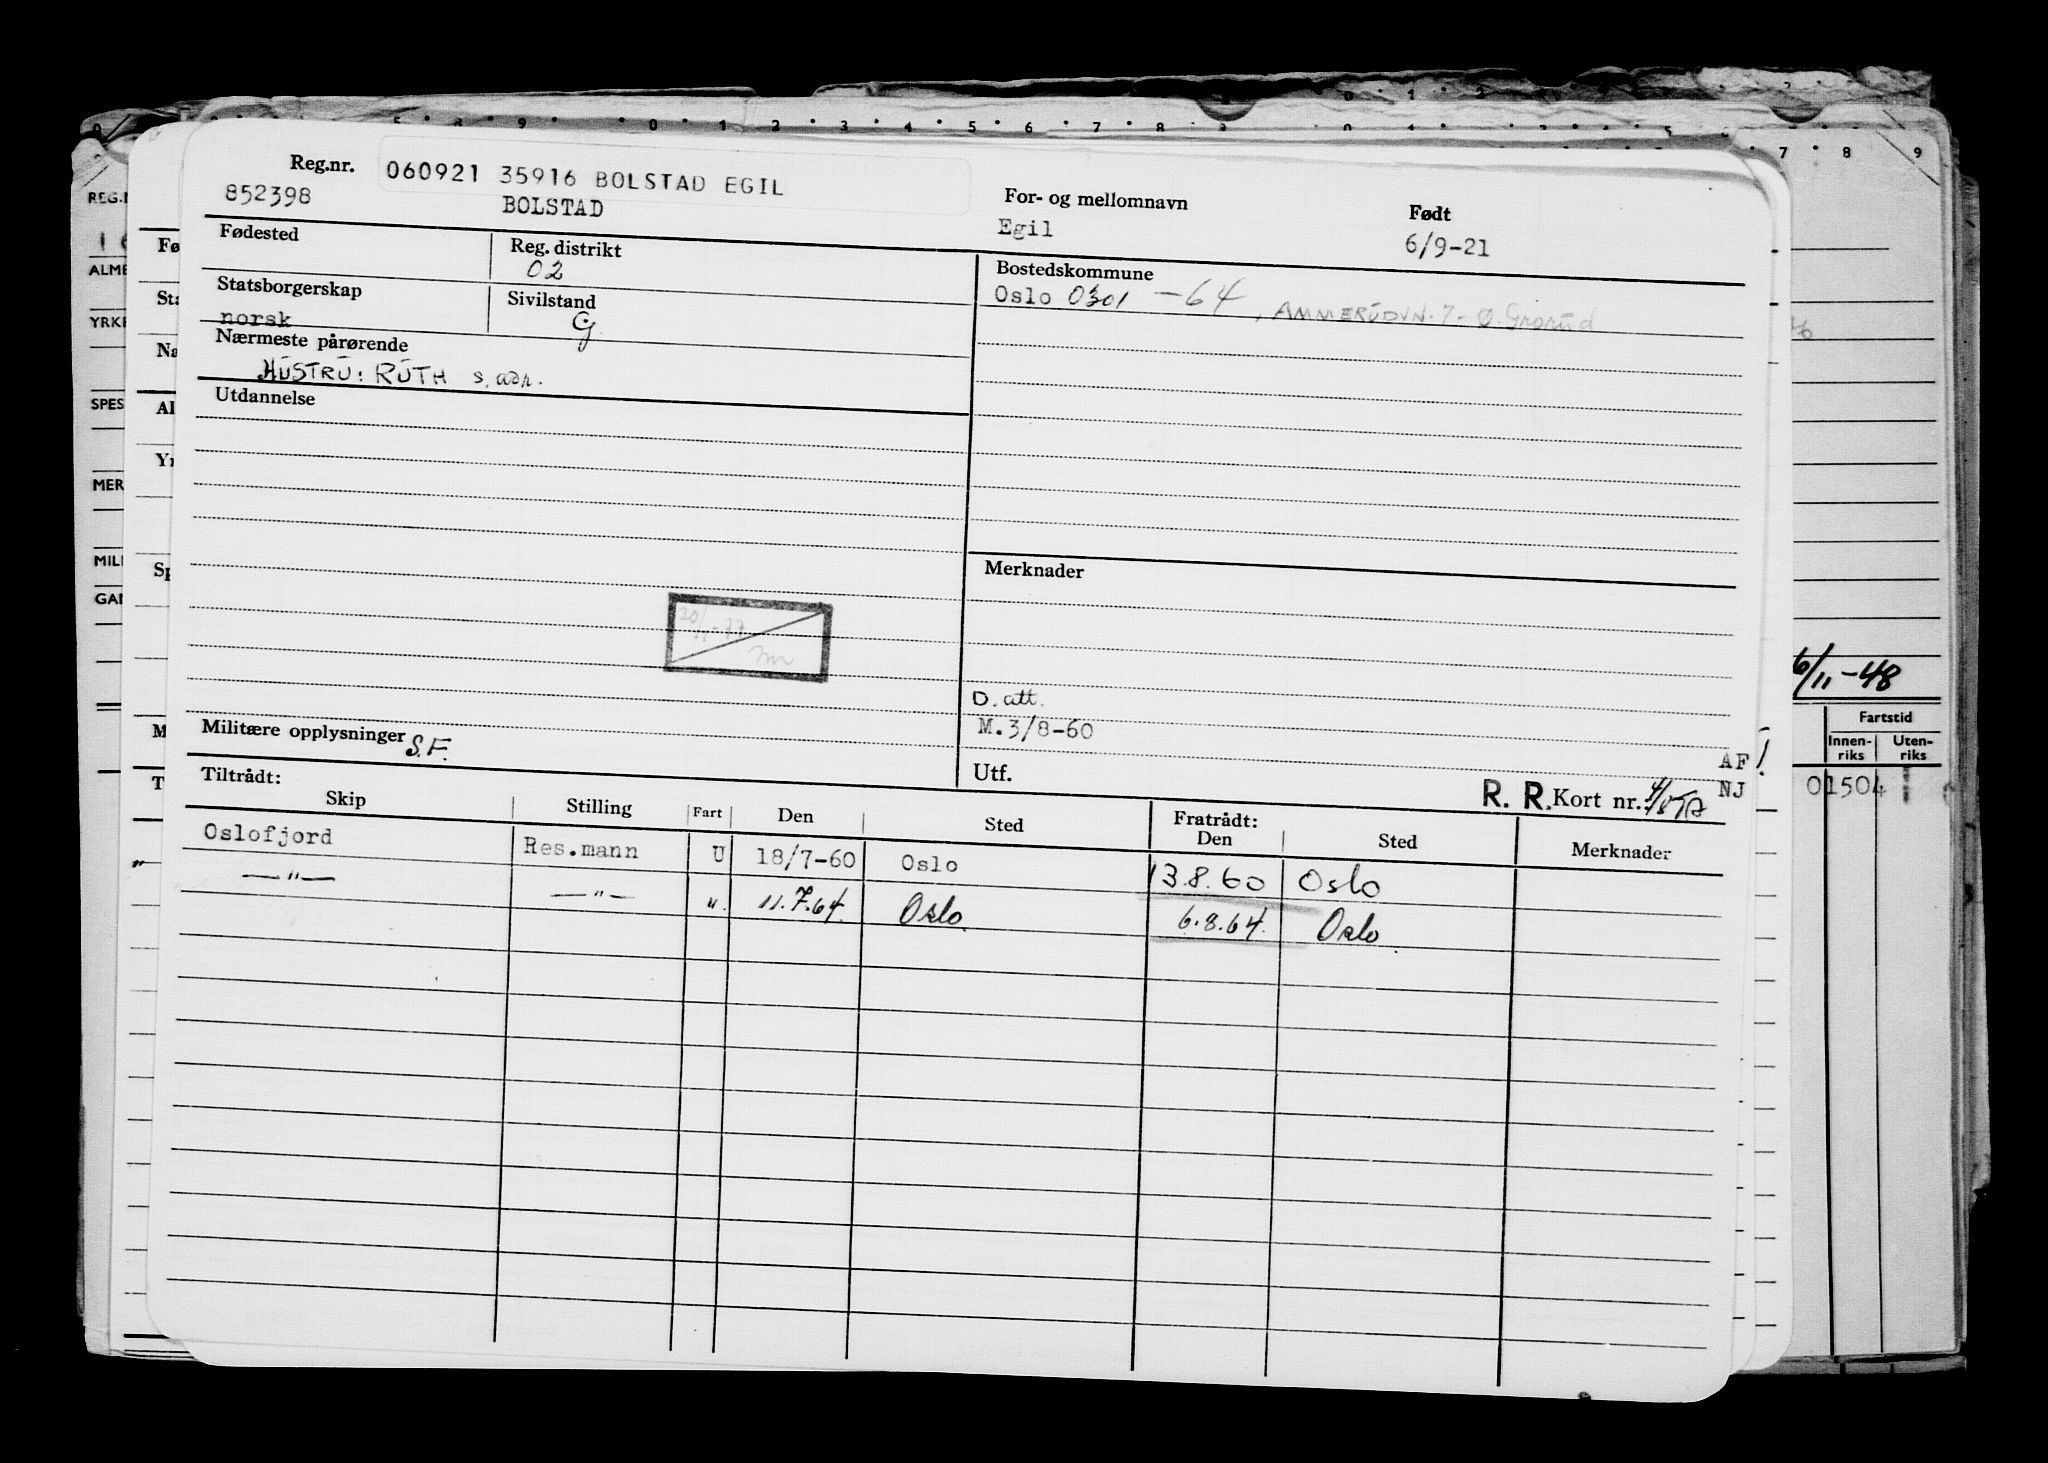 Reg.nr. 060921 35916 BOLSTAD EGIL
852398 BOLSTAD
For- og mellomnavn
Egil
Født
6/9-21
Fødested
Reg. distrikt
02
Bostedskommune
Oslo 0301 -64, AMMERUDVN. 7 - Ø. Grorud
Statsborgerskap
norsk
Sivilstand
G
Nærmeste pårørende
HUSTRU: RUTH s. adr.
Utdannelse
Merknader
D. att.
M. 3/8-60
Militære opplysninger S.F.
Utf.
R. R. Kort nr.
Tiltrådt:
Fratrådt:
Skip Stilling Fart Den Sted Den Sted Merknader
Oslofjord Res.mann U 18/7-60 Oslo 13.8.60 Oslo
—"— —"— ". 11.7.64. Oslo. 6.8.64. Oslo.
AF
NJ
6/11-48
Fartstid
Innen-
riks
Uten-
riks
01504
REG.N
ALME
YRKE
SPES
MER
MILI